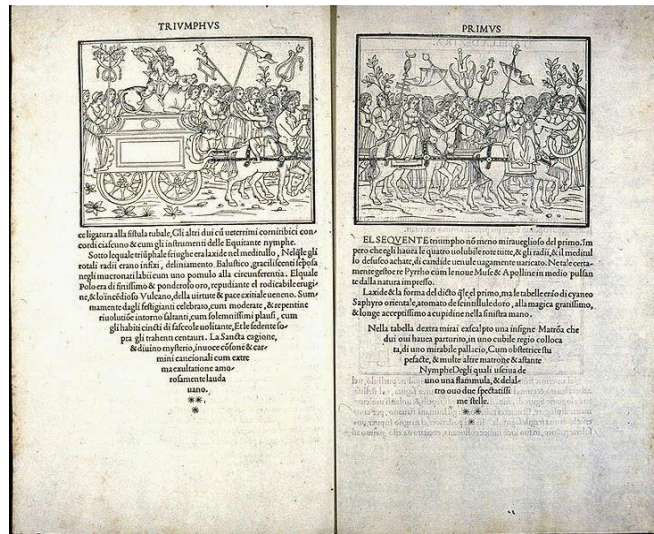 TRIVMPHVS
ce ligatura alla fistula tubale, Gli altri dui cũ ueterrimi cornitibici con
cordi ciascuno & cum gli instrumenti delle Equitante nymphe.
Sotto lequale triũphale seiughe era laxide nel meditullo, Nelq̃le gli
rotali radii erano infixi, deliniamento Balustico, graciliscenti seposa
negli mucronati labii cum uno pomulo alla circunferentia. Elquale
Polo era di finissimo & ponderoso oro, repudiante el rodicabile erugi-
ne, & lo incẽdioso Vulcano, della uirtute & pace exitiale ueneno. Sum-
mamente dagli festigianti celebrato, cum moderate, & repentine
riuolutiõe intorno saltanti, cum solemnissimi plausi, cum
gli habiti cincti di fasceole uolitante, Et le sedente so-
pra gli trahenti centauri. La Sancta cagione,
& diuino mysterio, inuoce cõsone & car-
mini cancionali cum extre
ma exultatione amo-
rosamente lauda
uano.
PRIMVS
EL SEQVENTE triumpho nõ meno miraueglioso del primo. Im
pero che egli hauea le quatro uolubile rote tutte, & gli radii, & il meditul
lo defusco achate, di candide uenule uagamente uaricato. Netale certa-
mente gestoe re Pyrrho cum le noue Muse & Apolline in medio pulsan
te dalla natura impresso.
Laxide & la forma del dicto q̃le el primo, ma le tabelle erão di cyaneo
Saphyro orientale, atomato de scintillule doro, alla magica gratissimo,
& longe acceptissimo a cupidine nella sinistra mano.
Nella tabella dextra mirai exscalpto una insigne Matrõa che
dui oui hauea parturito, in uno cubile regio colloca
ta, di uno mirabile pallacio, Cum obstetrice stu
pefacte, & multe altre matrone & astante
Nymphe Degli quali usciua de
uno una flammula, & delal-
tro ouo due spectatissi
me stelle.